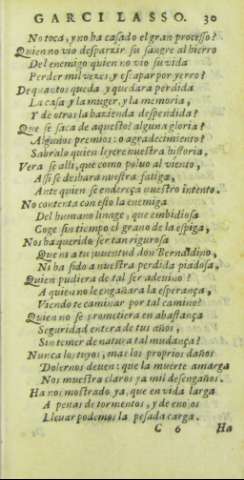 GARCI LASSO. 30
No toca, y no ha casado el gran processo?
Quien no vio desparzir su sangre al hierro
Del enemigo quien no vio su vida
Perder mil vezes, y escapar por yerro?
De quantos queda y quedara perdida
La casa y la muger, y la memoria,
Y de otros la hazienda despendida?
Que se saca de aquesto? alguna gloria?
Algunos premios: o agradecimiento?
Sabralo quien leyere nuestra historia,
Vera se alli, que como poluo al viento,
Assi se deshara nuestra fatiga,
Ante quien se endereça nuestro intento.
No contenta con esto la enemiga
Del humano linage, que embidiosa
Coge sin tiempo el grano de la espiga,
Nos ha querido ser tan rigurosa
Que ni a tu juuentud don Bernaldino,
Ni ha sido a nuestra perdida piadosa,
Quien pudiera de tal ser adeuino?
A quien no le engañara la esperança,
Viendo te caminar por tal camino?
Quien no se prometiera en abastança
Seguridad entera de tus años,
Sin temer de natura tal mudança?
Nunca los tuyos, mas los proprios daños
Dolernos deuen: que la muerte amarga
Nos muestra claros ya mil desengaños.
Ha nos mostrado ya, que en vida larga
A penas de tormentos, y de enojos
Lleuar podemos la pesada carga.
C 6 Ha